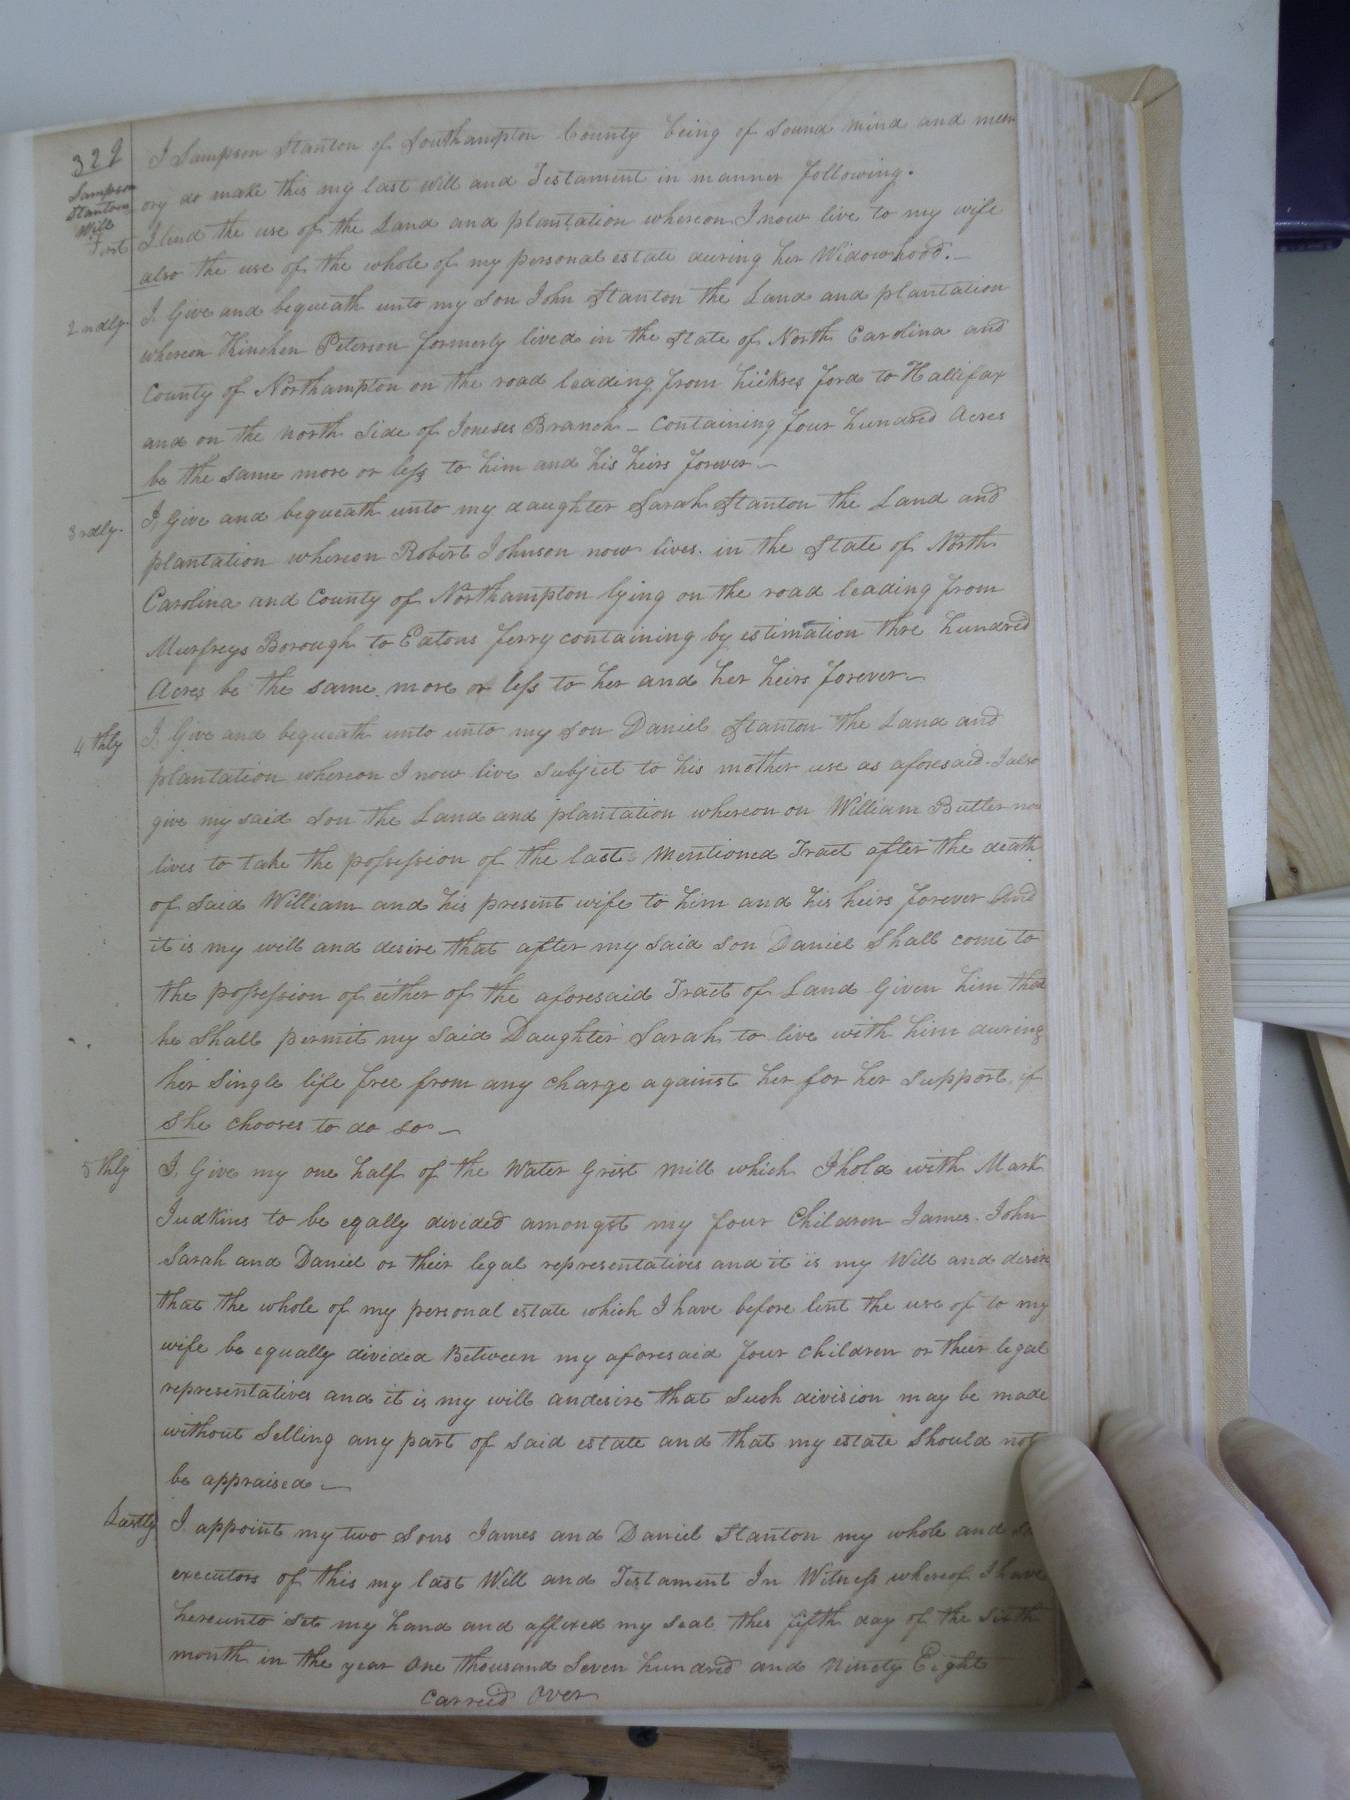 329
Sampson
Stantons
Will
I Sampson Stanton of Southampton County being of Sound mind and mem
ory do make this my last will and Testament in manner following.
First I lend the use of the Land and plantation whereon I now live to my wife
also the use of the whole of my personal estate during her Widowhood.—
2ndly I Give and bequeath unto my Son John Stanton the Land and plantation
whereon Kinchen Peterson formerly lived in the State of North Carolina and
County of Northampton on the road leading from hickses ford to Hallifax
and on the north Side of Joneses Branch — Containing four hundred Acres
be the same more or less to him and his heirs forever —
3rdly. I Give and bequeath unto my daughter Sarah Stanton the Land and
plantation whereon Robert Johnson now lives in the State of North
Carolina and County of Northampton lying on the road leading from
Murfreys Borough to Eatons ferry containing by estimation thre hundred
Acres be the same more or less to her and her heirs forever —
4thly I Give and bequeath unto unto my Son Daniel Stanton the Land and
plantation whereon I now live Subject to his mother use as aforesaid. I also
give my said Son the Land and plantation whereon on William Butler now
lives to take the possession of the last Mentioned Tract after the death
of Said William and his present wife to him and his heirs forever And
it is my will and desire that after my said son Daniel Shall come to
the possession of either of the aforesaid Tract of Land Given him that
he Shall permit my Said Daughter Sarah to live with him during
her Single life free from any charge against her for her Support if
She chooses to do so —
5thly I Give my one half of the Water Grist mill which I hold with Mark
Judkins to be egally divided amongst my four Children James. John
Sarah and Daniel or their legal representatives and it is my Will and desire
that the whole of my personal estate which I have before lent the use of to my
wife be equally divided Between my aforesaid four children or their legal
representatives and it is my will andesire that Such division may be made
without Selling any part of Said estate and that my estate Should not
be appraised —
Lastly I appoint my two Sons James and Daniel Stanton my whole and
executors of this my last Will and Testament In Witness whereof I have
hereunto Set my hand and affixed my Seal this fifth day of the Sixth
month in the year One thousand Seven hundred and Ninety Eight
Carried Over